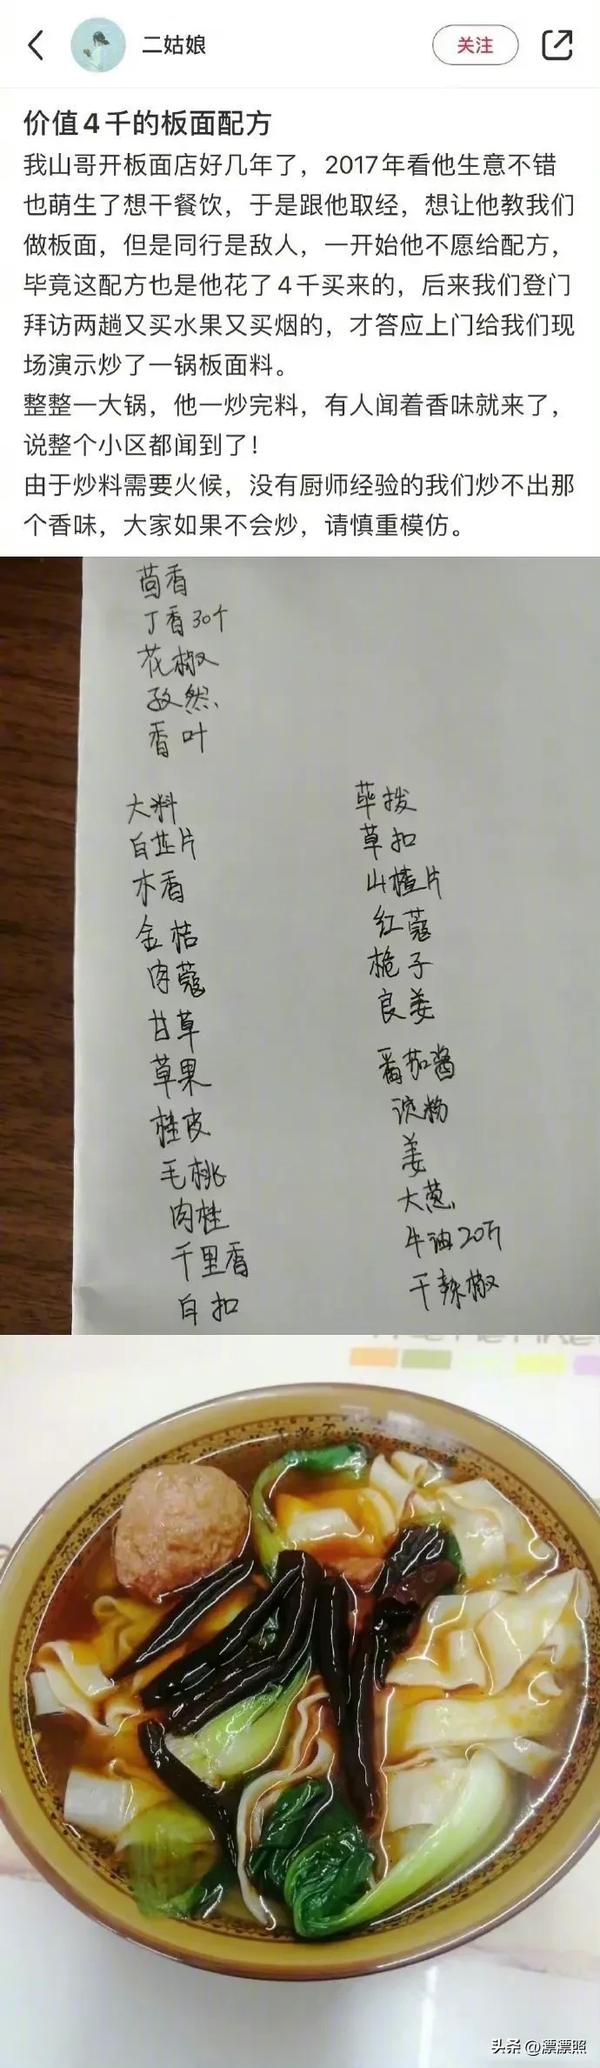 二姑娘
关注
价值4千的板面配方
我山哥开板面店好几年了，2017年看他生意不错
也萌生了想干餐饮，于是跟他取经，想让他教我们
做板面，但是同行是敌人，一开始他不愿给配方，
毕竟这配方也是他花了4千买来的，后来我们登门
拜访两趟又买水果又买烟的，才答应上门给我们现
场演示炒了一锅板面料。
整整一大锅，他一炒完料，有人闻着香味就来了，
说整个小区都闻到了！
由于炒料需要火候，没有厨师经验的我们炒不出那
个香味，大家如果不会炒，请慎重模仿。
茴香
丁香30个
花椒
孜然
香叶
大料
白芷片
木香
金桔
肉蔻
甘草
草果
桂皮
毛桃
肉桂
千里香
白扣
荜拨
草扣
山楂片
红蔻
栀子
良姜
番茄酱
淀粉
姜
大葱
牛油20斤
干辣椒
头条 @漂漂照